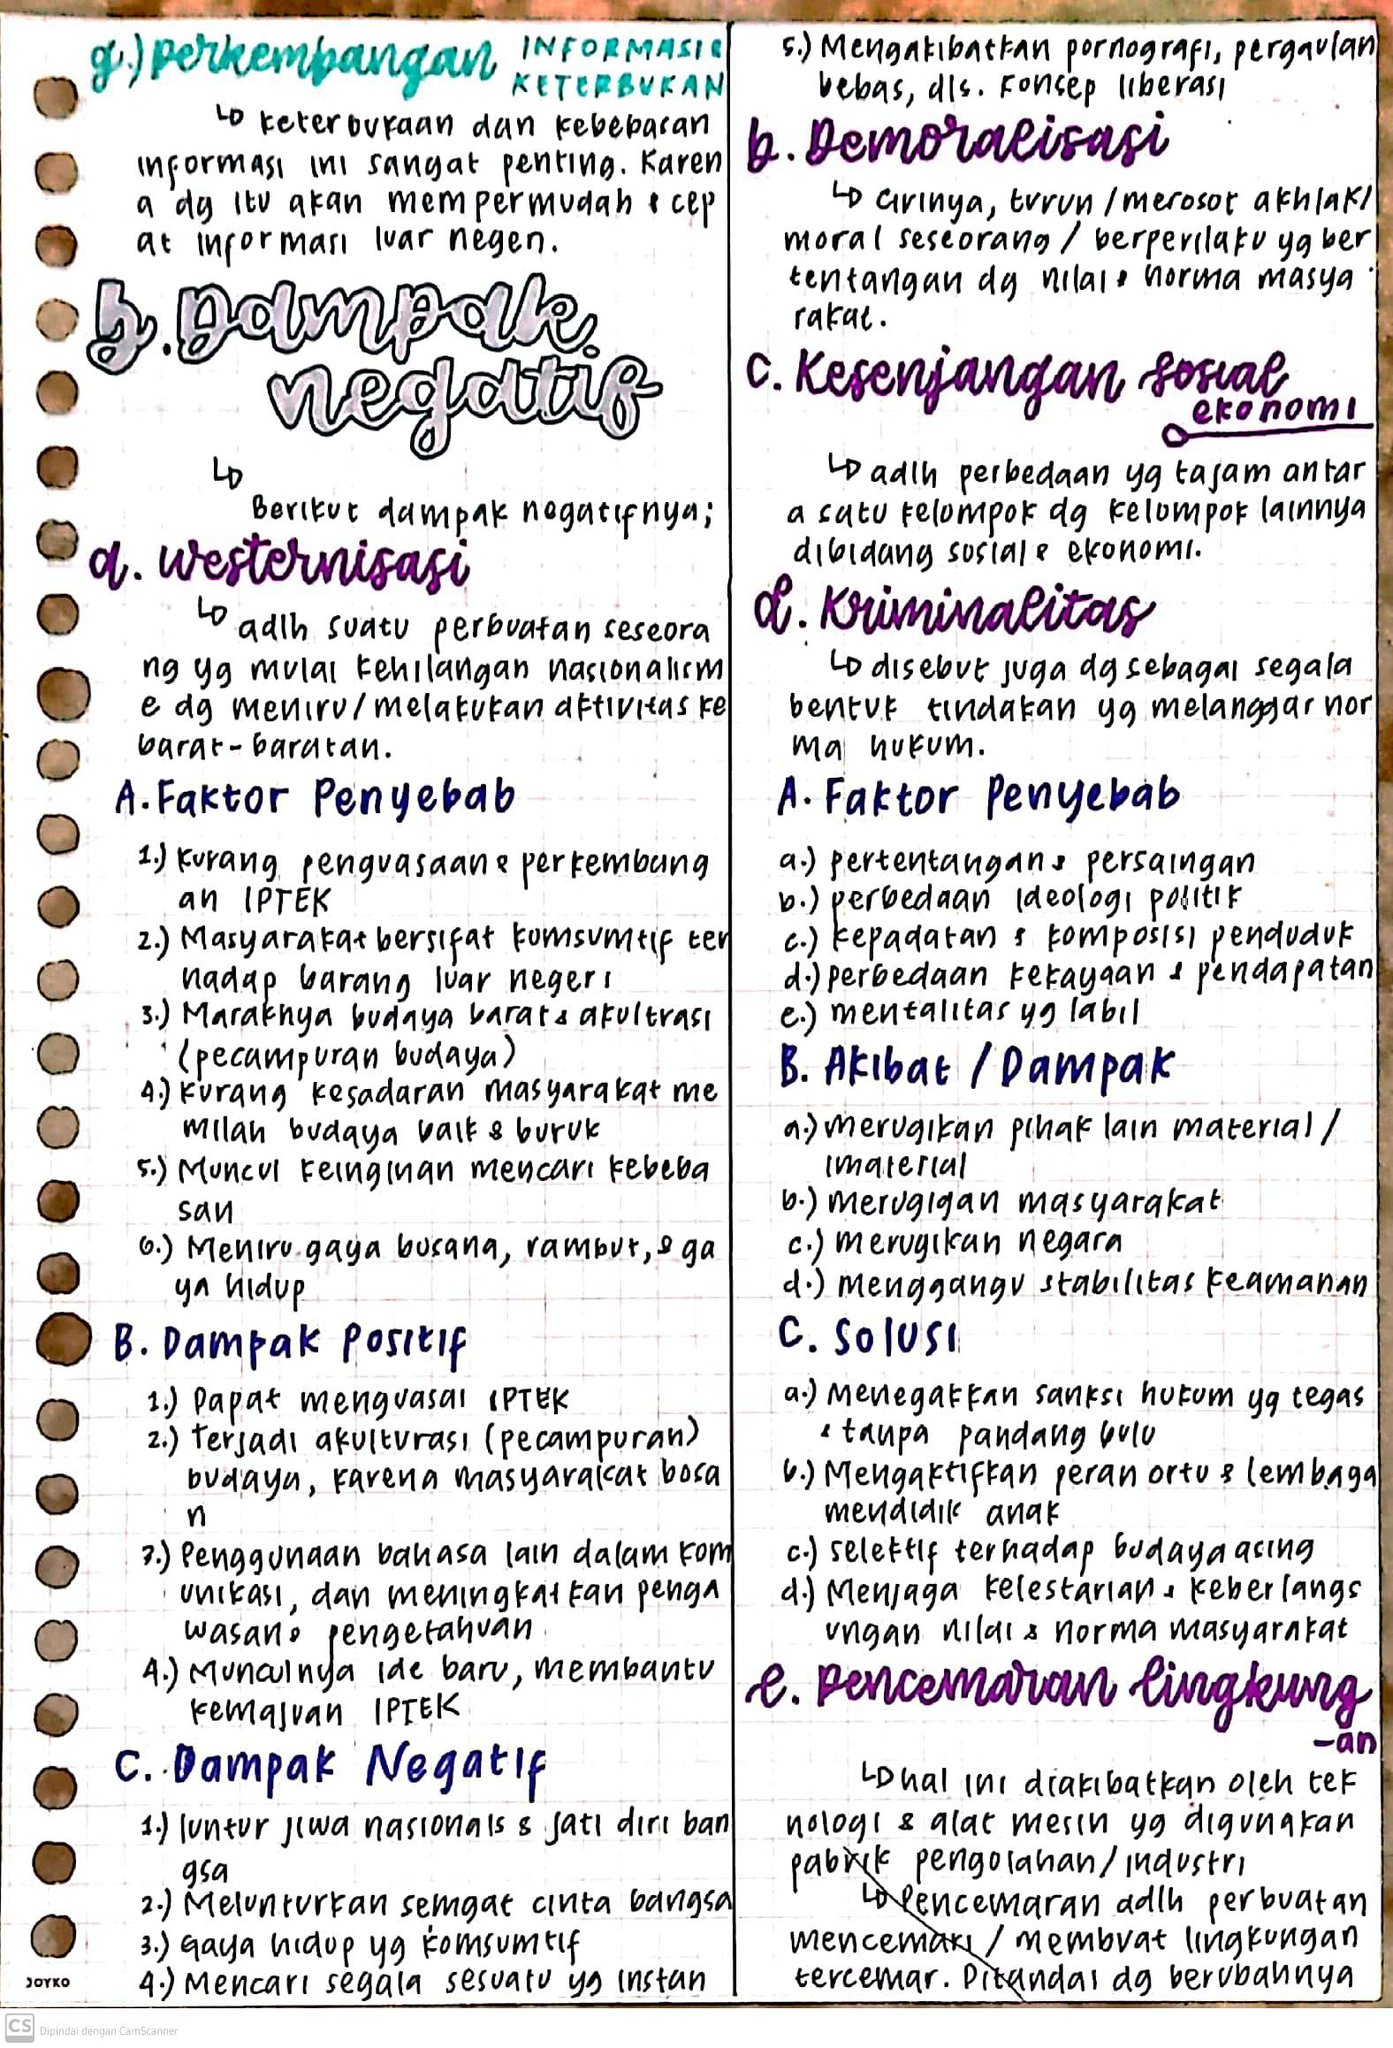 g.) perkembangan INFORMASI &
KETERBUKAN
↳ keterbukaan dan kebebasan
informasi ini sangat penting. Karen
a dg itu akan mempermudah & cep
at informasi luar negeri.
b. Dampak
negatif
↳
Berikut dampak negatifnya;
a. Westernisasi
↳ adlh suatu perbuatan seseora
ng yg mulai kehilangan nasionalism
e dg meniru/melakukan aktivitas ke
barat-baratan.
A. Faktor Penyebab
1.) Kurang penguasaan & perkembang
an IPTEK
2.) Masyarakat bersifat komsumtif ter
hadap barang luar negeri
3.) Maraknya budaya barat & akultrasi
(pecampuran budaya)
4.) Kurang kesadaran masyarakat me
milah budaya baik & buruk
5.) Muncul keinginan mencari kebeba
san
6.) Meniru gaya busana, rambut, & ga
ya hidup
B. Dampak Positif
1.) Dapat menguasai IPTEK
2.) Terjadi akulturasi (pecampuran)
budaya, karena masyarakat bosa
n
3.) Penggunaan bahasa lain dalam kom
unikasi, dan meningkatkan penga
wasan & pengetahuan
4.) Munculnya ide baru, membantu
kemajuan IPTEK
C. Dampak Negatif
1.) luntur jiwa nasionals & jati diri ban
gsa
2.) Melunturkan semgat cinta bangsa
3.) Gaya hidup yg komsumtif
4.) Mencari segala sesuatu yg instan
JOYKO
5.) Mengakibatkan pornografi, pergaulan
bebas, dls. Konsep liberasi
b. Demoralisasi
↳ cirinya, turun/merosot akhlak/
moral seseorang/berperilaku yg ber
tentangan dg nilai & norma masya
rakat.
C. Kesenjangan sosial
ekonomi
↳ adlh perbedaan yg tajam antar
a satu kelompok dg kelompok lainnya
dibidang sosial & ekonomi.
d. Kriminalitas
↳ disebut juga dg sebagai segala
bentuk tindakan yg melanggar nor
ma hukum.
A. Faktor Penyebab
a.) pertentangan & persaingan
b.) perbedaan ideologi politik
c.) kepadatan & komposisi penduduk
d.) perbedaan kekayaan & pendapatan
e.) mentalitas yg labil
B. Akibat / Dampak
a.) merugikan pihak lain material /
imaterial
b.) merugigan masyarakat
c.) merugikan negara
d.) menggangu stabilitas keamanan
C. Solusi
a.) Menegakkan sanksi hukum yg tegas
& tanpa pandang bulu
b.) Mengaktifkan peran ortu & lembaga
mendidik anak
c.) selektif terhadap budaya asing
d.) Menjaga kelestarian & keberlangs
ungan nilai & norma masyarakat
e. Pencemaran lingkung
-an
↳ hal ini diakibatkan oleh tek
nologi & alat mesin yg digunakan
pabrik pengolahan/industri
↳ Pencemaran adlh perbuatan
mencemari / membuat lingkungan
tercemar. Ditandai dg berubahnya
CS Dipindai dengan CamScanner